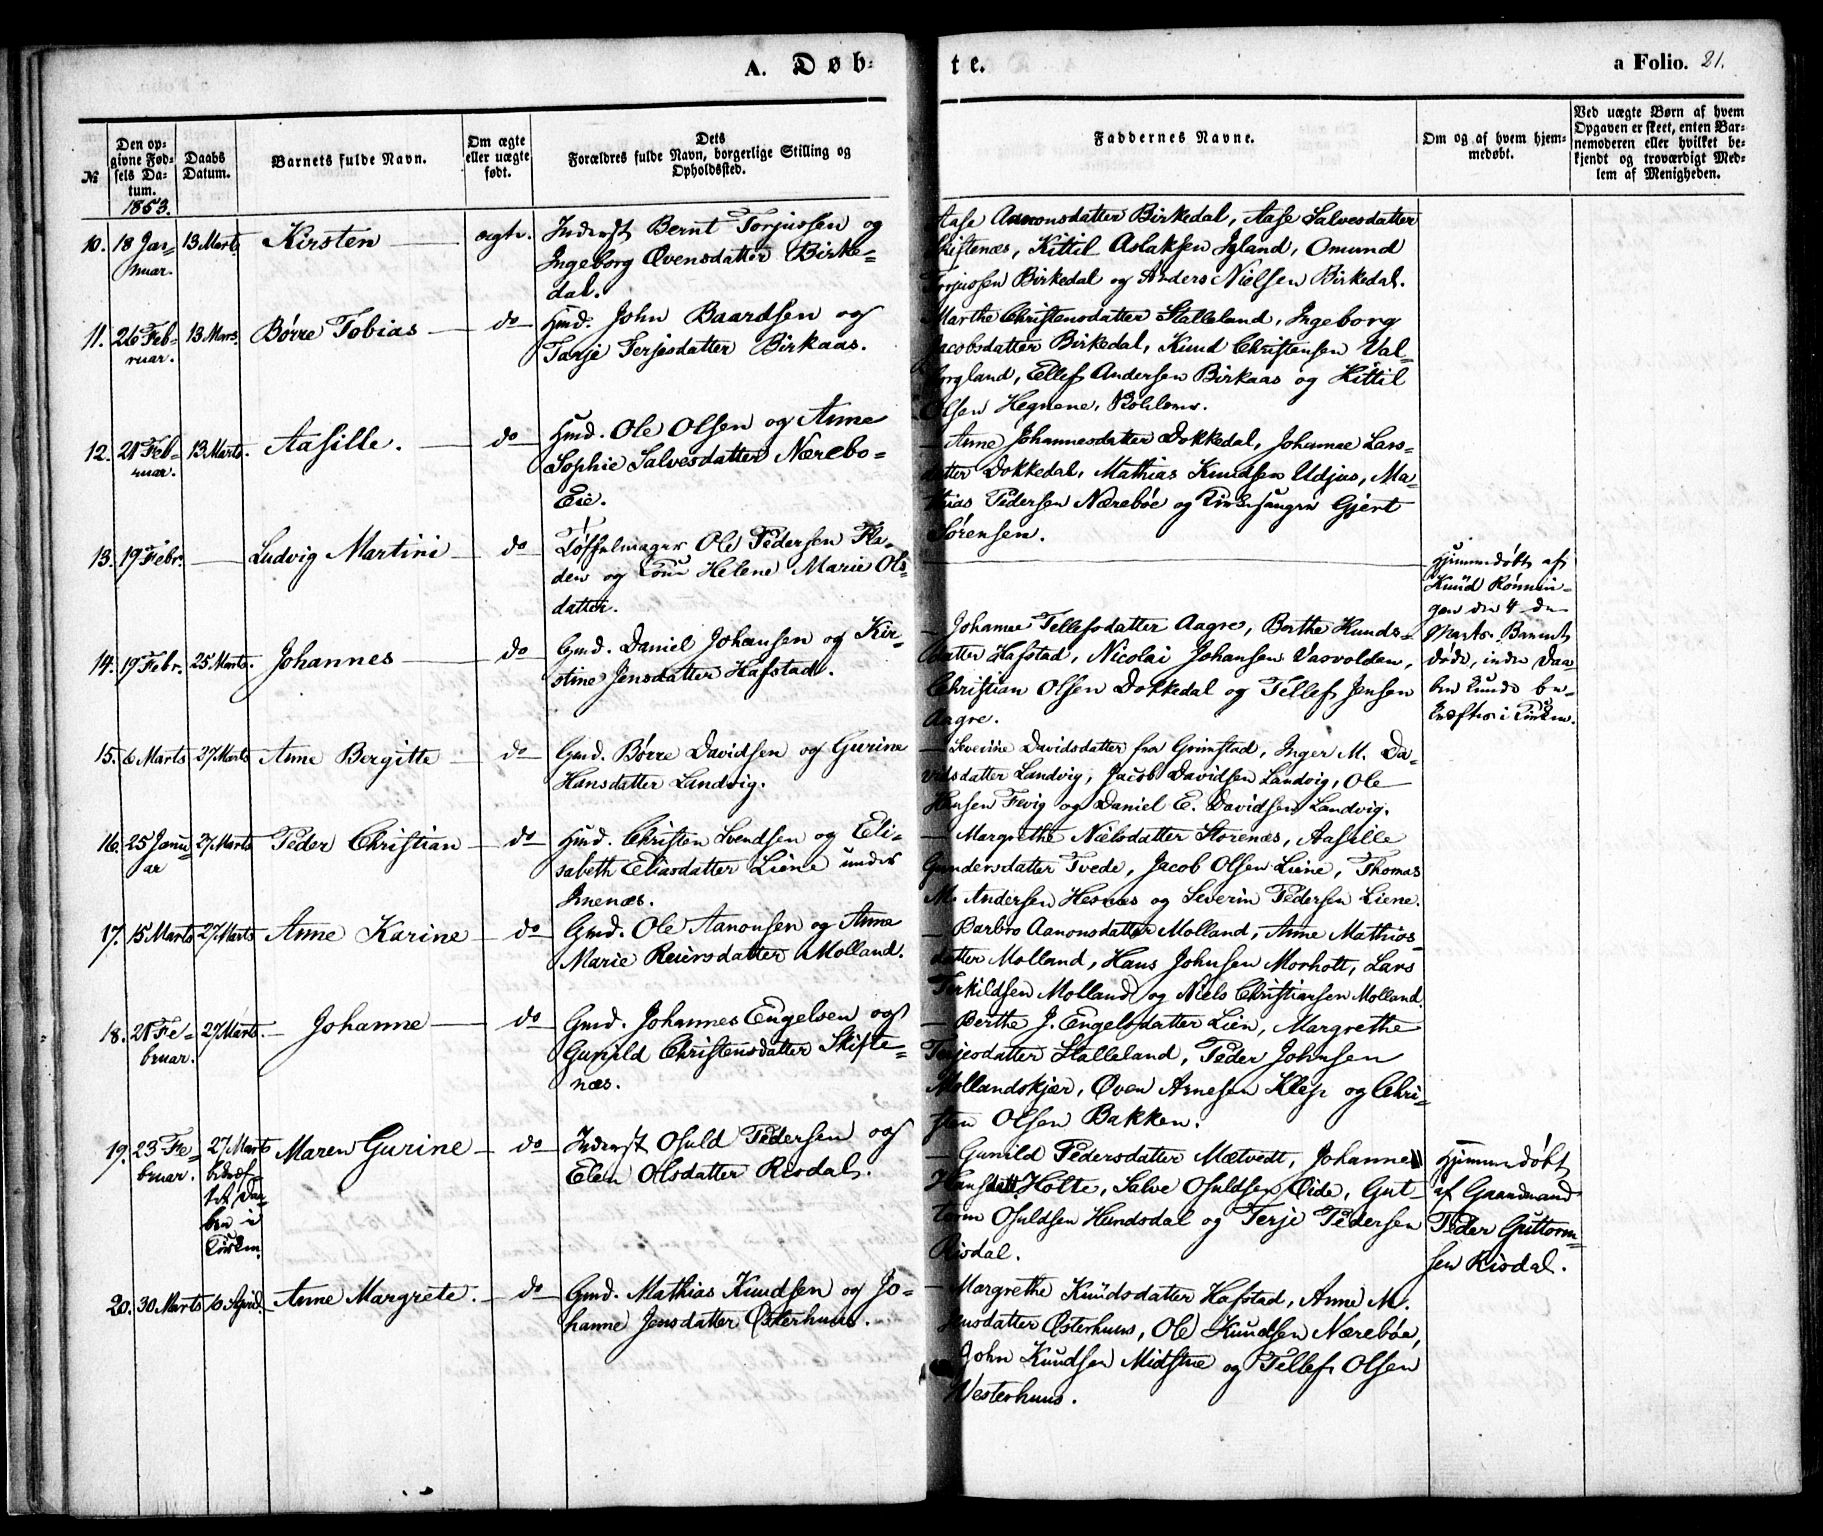 A. Døb-
te.
a Folio. 21.
№
Den op-
givne Fød-
sels Da-
tum.
1853.
Daabs
Datum.
Barnets fulde Navn.
Om ægte
eller uægte
født.
Dets
Forældres fulde Navn, borgerlige Stilling og
Opholdssted.
Faddernes Navne.
Om og af hvem hjem-
medøbt.
Ved uægte Børn af hvem
Opgaven er skeet, enten Bar-
nemoderen eller hvilket be-
kjendt og troværdigt Med-
lem af Menigheden.
10. 18 Jan-
nuar.
13 Marts
Kirsten
ægte.
Inderst Bernt Torjussen og
Ingeborg Øvensdatter Birke-
dal.
Aase Aanonsdatter Birkedal, Aase Salvesdatter
Skiftenæs, Kittil Aslaksen Igland, Omund
Torjussen Birkedal og Anders Nielsen Birkedal.
11. 26 Feb-
ruar.
13 Mars.
Børre Tobias
do
Hmd. John Baardsen og
Tarje Terjesdatter Birkaas.
Marthe Christensdatter Stalleland, Ingeborg
Jacobsdatter Birkedal, Knud Christensen Val-
borgland, Ellef Andersen Birkaas og Kittil
Olsen Hegnene,
12. 21 Feb-
ruar.
13 Marts.
Aasille.
do
Hmd. Ole Olsen og Anne
Sophie Salvesdatter Nærebo-
Eie.
Anne Johannesdatter Dokkedal, Johanne Lars-
datter Dokkedal, Mathias Knudsen Udjus, Ma-
thias Pedersen Nærebøe og Kirkesanger Gjert
Sørensen.
13. 19 Febr.
Ludvig Martini
do
Tøffelmager Ole Pedersen Fla-
den og Kone Helene Marie Ols-
datter.
Hjemmedøbt af
Knud Rønnin-
gen den 4 de
Marts. Barnet
døde, inden Daa-
ben kunde be-
kræftes i Kirken.
14. 19 Febr.
25 Marts.
Johannes
do
Gmd. Daniel Johansen og Kir-
stine Jensdatter Hafstad.
Johanne Tellefsdatter Aagre, Berthe Knuds-
datter Hafstad, Nicolai Johansen Vasvolden,
Christian Olsen Dokkedal og Tellef Jensen
Aagre.
15. 6 Marts
27 Marts
Anne Bergitte
do
Gmd. Børre Davidsen og Gurine
Hansdatter Landvig.
Severine Davidsdatter fra Grimstad, Inger M. Da-
vidsdatter Landvig, Jacob Davidsen Landvig, Ole
Hansen Fevig og Daniel E. Davidsen Landvig.
16. 25 Janu-
ar
27 Marts
Peder Christian
do
Hmd. Christen Svendsen og Eli-
sabeth Eliasdatter Liene under
Imenæs.
Margrethe Nielsdatter Storenæs, Aasille
Gundersdatter Tvede, Jacob Olsen Liene, Thomas
M. Andersen Hesnæs og Severin Pedersen Liene.
17. 15 Marts
27 Marts
Anne Karine
do
Gmd. Ole Aanonsen og Anne
Marie Reiersdatter Molland.
Barbro Aanonsdatter Molland, Anne Mathias-
datter Molland, Hans Johnsen Morholt, Lars
Terkildsen Molland og Niels Christiansen Molland.
18. 21 Fe-
bruar.
27 Marts.
Johanne
do
Gmd. Johannes Engelsen og
Gunild Christensdatter Skifte-
næs.
Berthe J. Engelsdatter Lien, Margrethe
Terjesdatter Stalleland, Peder Johnsen
Mollandskjær, Øven Arnesen Klep og Chri-
sten Olsen Bakken.
19. 23 Fe-
bruar.
27 Marts
bekræf-
tet Daa-
ben i
Kirken.
Maren Gurine
do
Inderst Osuld Pedersen og
Elen Olsdatter Risdal.
Gunild Pedersdatter Mætvedt, Johanne
Hansdatt. Holte, Salve Osuldsen Eide, Gut-
torm Osuldsen Hundsdal og Terje Pedersen
Risdal.
Hjemmedøbt
af Gaardmand
Peder Guttorm-
sen Risdal.
20. 30 Marts
10 April.
Anne Margrete.
do
Gmd. Mathias Knudsen og Jo-
hanne Jensdatter Østerhuus.
Margrethe Knudsdatter Hafstad, Anne M.
Jensdatter Østerhuus, Ole Knudsen Nærebøe,
John Knudsen Midstue og Tellef Olsen
Vesterhuus.